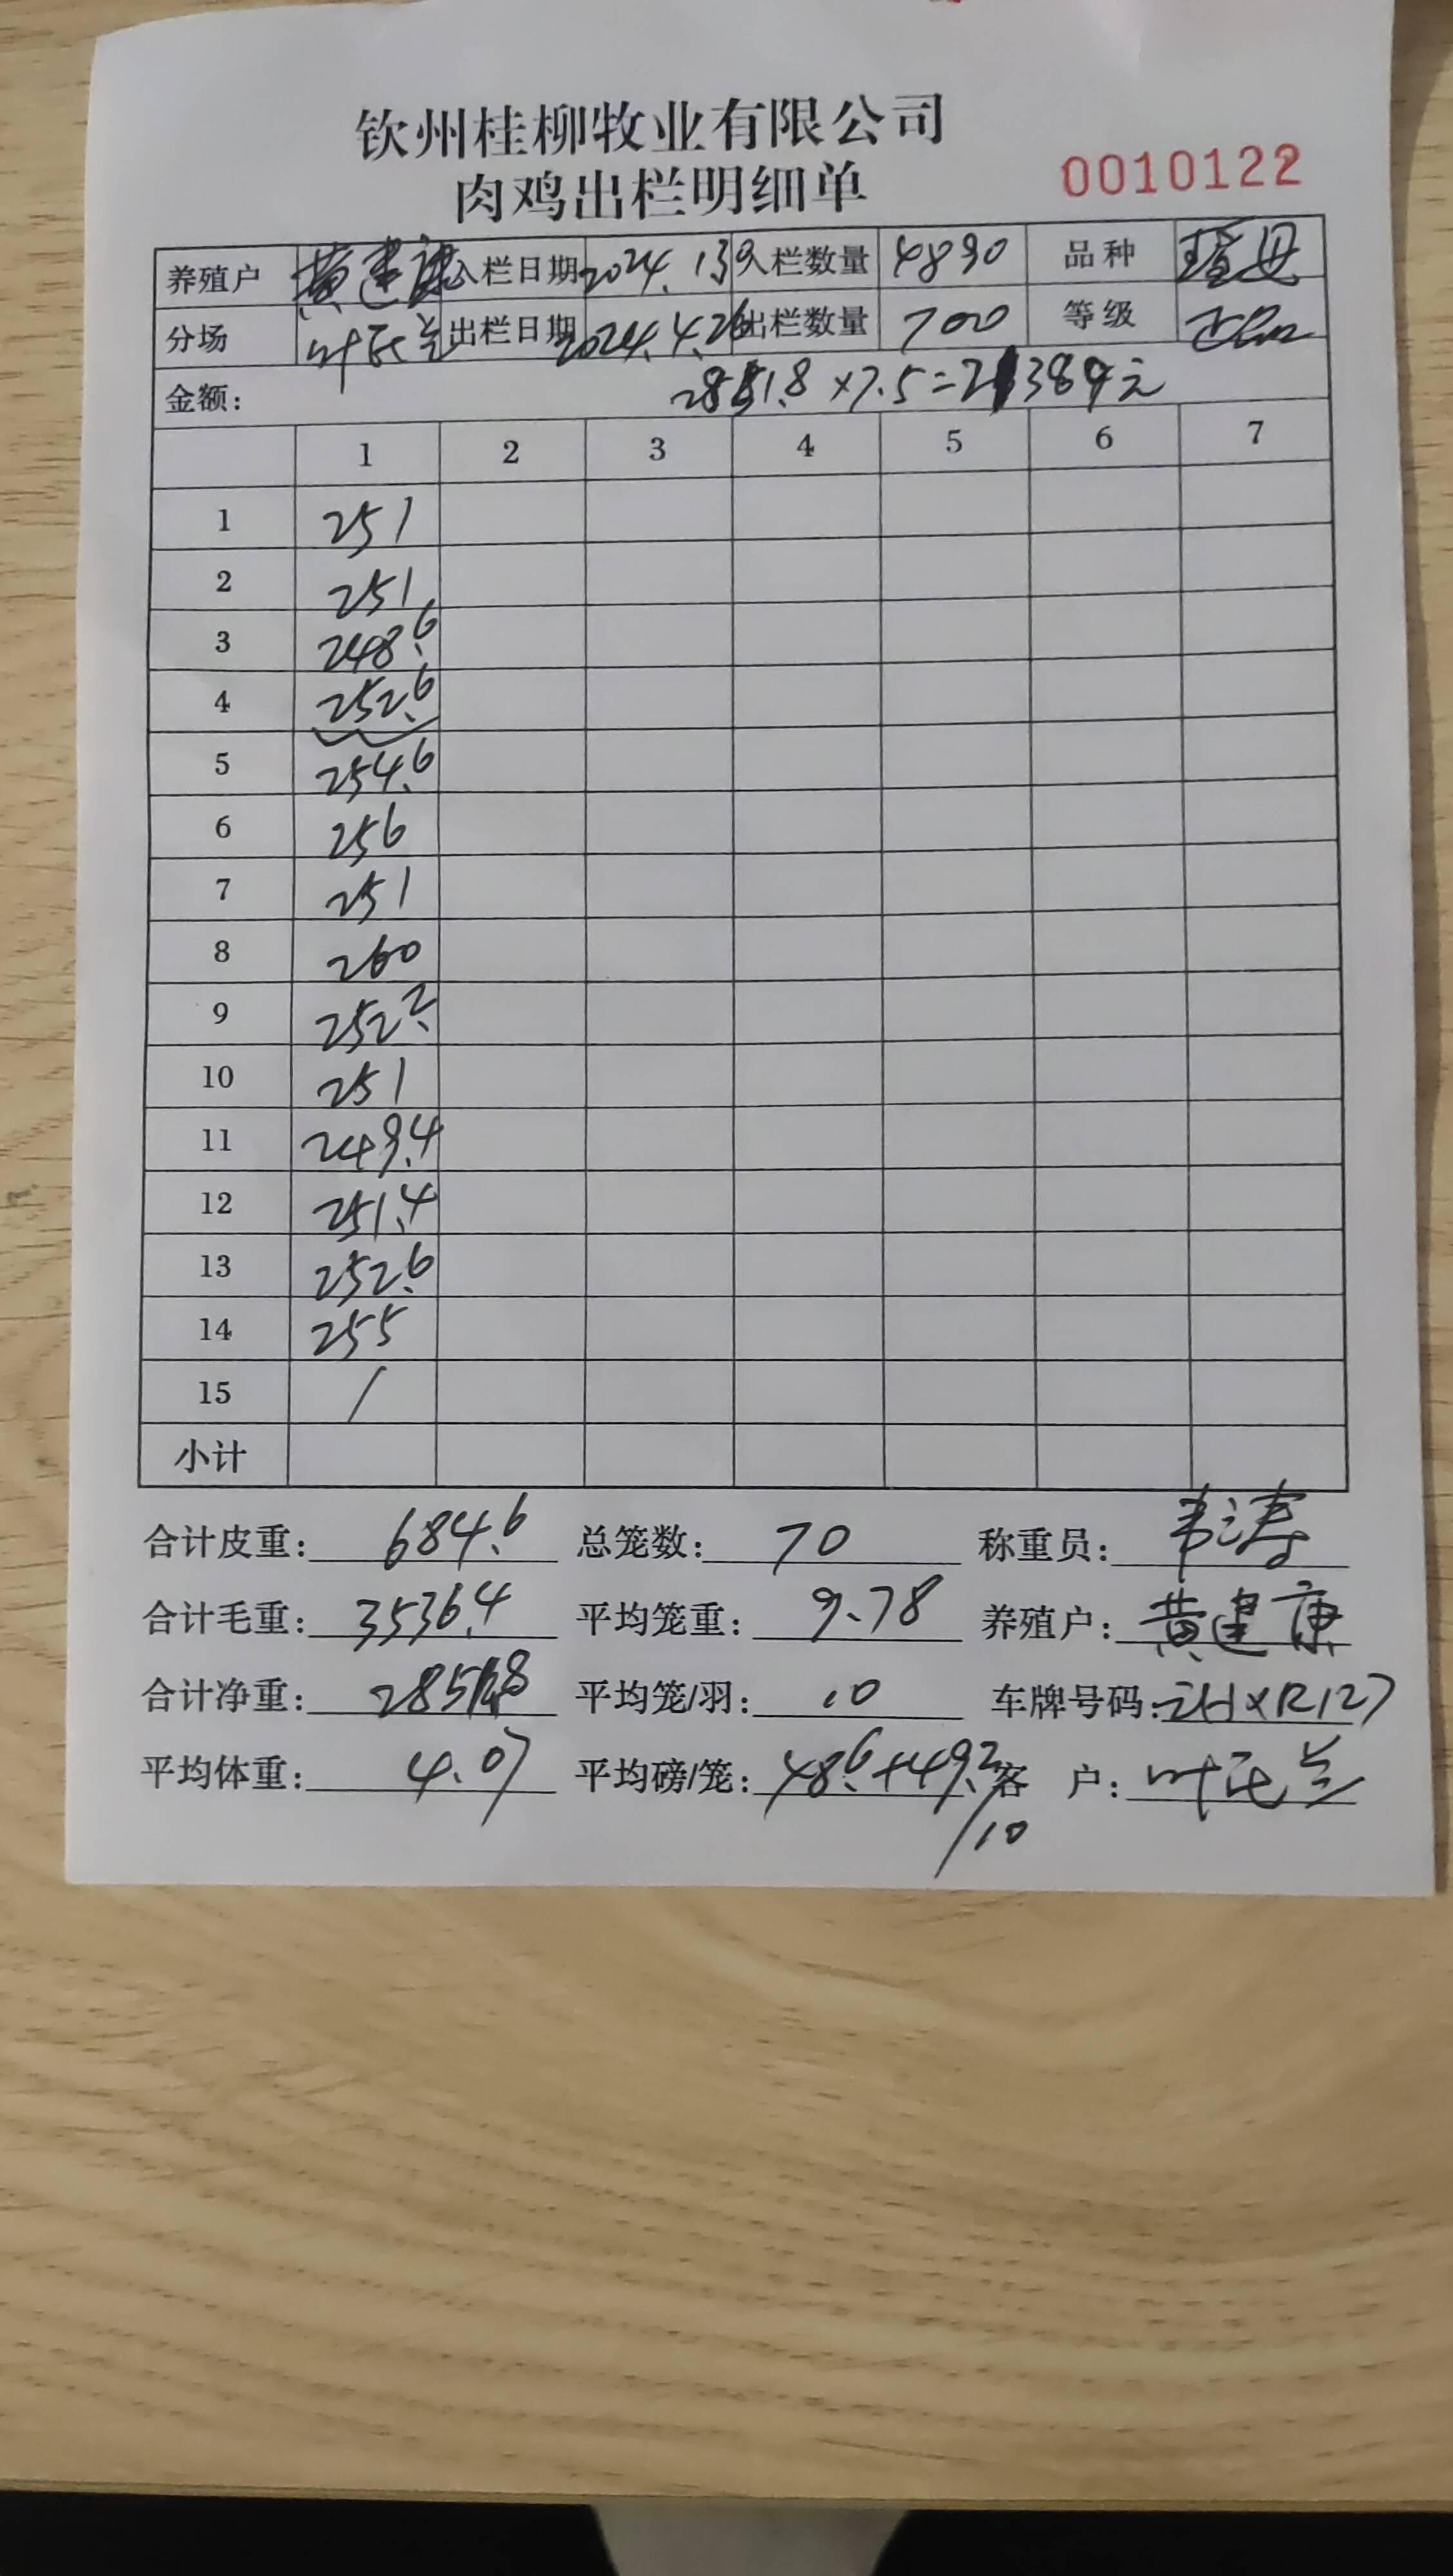 钦州桂柳牧业有限公司
肉鸡出栏明细单
0010122
养殖户 黄建康 入栏日期 2024.1.39 入栏数量 4890 品种
分场 叶氏兰 出栏日期 2024.4.26 出栏数量 700 等级 正品
金额： 2851.8×7.5=21389元
1 2 3 4 5 6 7
1 251
2 251
3 248.6
4 252.6
5 254.6
6 256
7 251
8 260
9 252.2
10 251
11 249.4
12 251.4
13 252.6
14 255
15 /
小计
合计皮重： 684.6 总笼数： 70 称重员： 韦涛
合计毛重： 3536.4 平均笼重： 9.78 养殖户： 黄建康
合计净重： 2851.8 平均笼/羽： 10 车牌号码：
平均体重： 4.07 平均磅/笼： 48.6+49.2/10 客 户： 叶氏兰